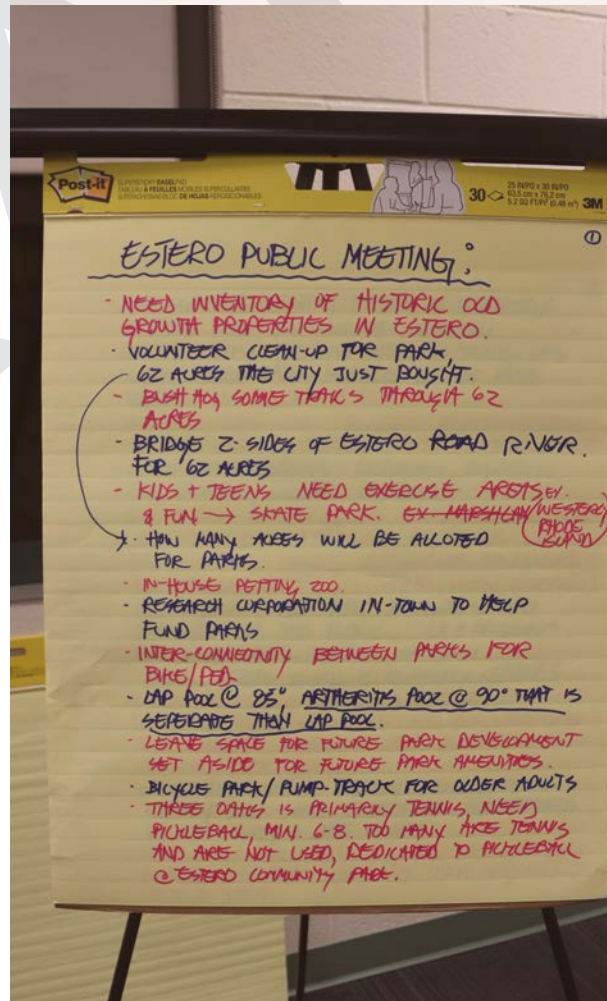 Post-it
SUPERSTICKY EASEL PAD
TABLEAU À FEUILLES MOBILES SUPERCOLLANTES
30
25 IN/PO x 30 IN/PO
63,5 cm x 76,2 cm
5.2 SQ FT/PI² (0,48 m²)
3M
①
ESTERO PUBLIC MEETING:
- NEED INVENTORY OF HISTORIC OLD
GROWTH PROPERTIES IN ESTERO.
- VOLUNTEER CLEAN-UP FOR PARK,
62 ACRES THE CITY JUST BOUGHT.
- BUSH HOG SOME TRAILS THROUGH 62
ACRES
- BRIDGE 2-SIDES OF ESTERO ROAD RIVER.
FOR 62 ACRES
- KIDS + TEENS NEED EXERCISE AREAS EX.
& FUN → SKATE PARK. EX WESTERLY
RHODE
ISLAND
- HOW MANY ACRES WILL BE ALLOTED
FOR PARKS.
- IN-HOUSE PETTING ZOO.
- RESEARCH CORPORATION IN-TOWN TO HELP
FUND PARKS
- INTER-CONNECTIVITY BETWEEN PARKS FOR
BIKE/PED
- LAP POOL @ 85°, ARTHERITIS POOL @ 90° THAT IS
SEPERATE THAN LAP POOL.
- LEAVE SPACE FOR FUTURE PARK DEVELOPMENT
SET ASIDE FOR FUTURE PARK AMENITIES.
- BICYCLE PARK/PUMP-TRACK FOR OLDER ADULTS
- THREE OAKS IS PRIMARLY TENNIS, NEED
PICKLEBALL, MIN. 6-8. TOO MANY ARE TENNIS
AND ARE NOT USED, DEDICATED TO PICKLEBALL
@ ESTERO COMMUNITY PARK.